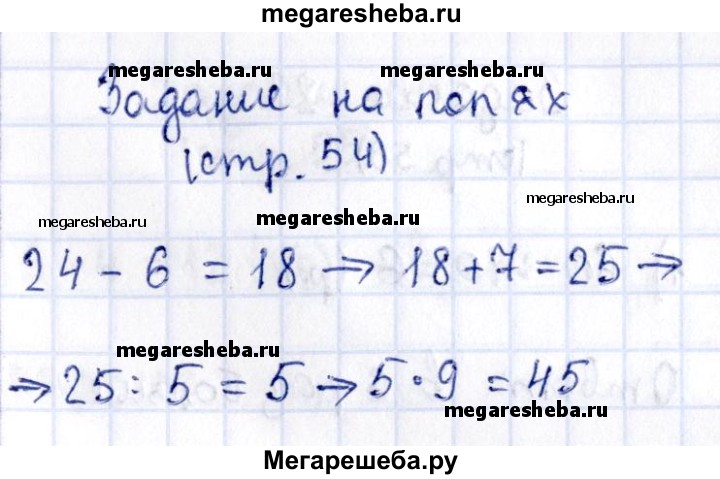 megaresheba.ru
megaresheba.ru megaresheba.ru
Задание на полях
(стр. 54)
megaresheba.ru megaresheba.ru megaresheba.ru
24 - 6 = 18 → 18 + 7 = 25 →
megaresheba.ru
→ 25 : 5 = 5 → 5 · 9 = 45
megaresheba.ru
Мегарешеба.ру